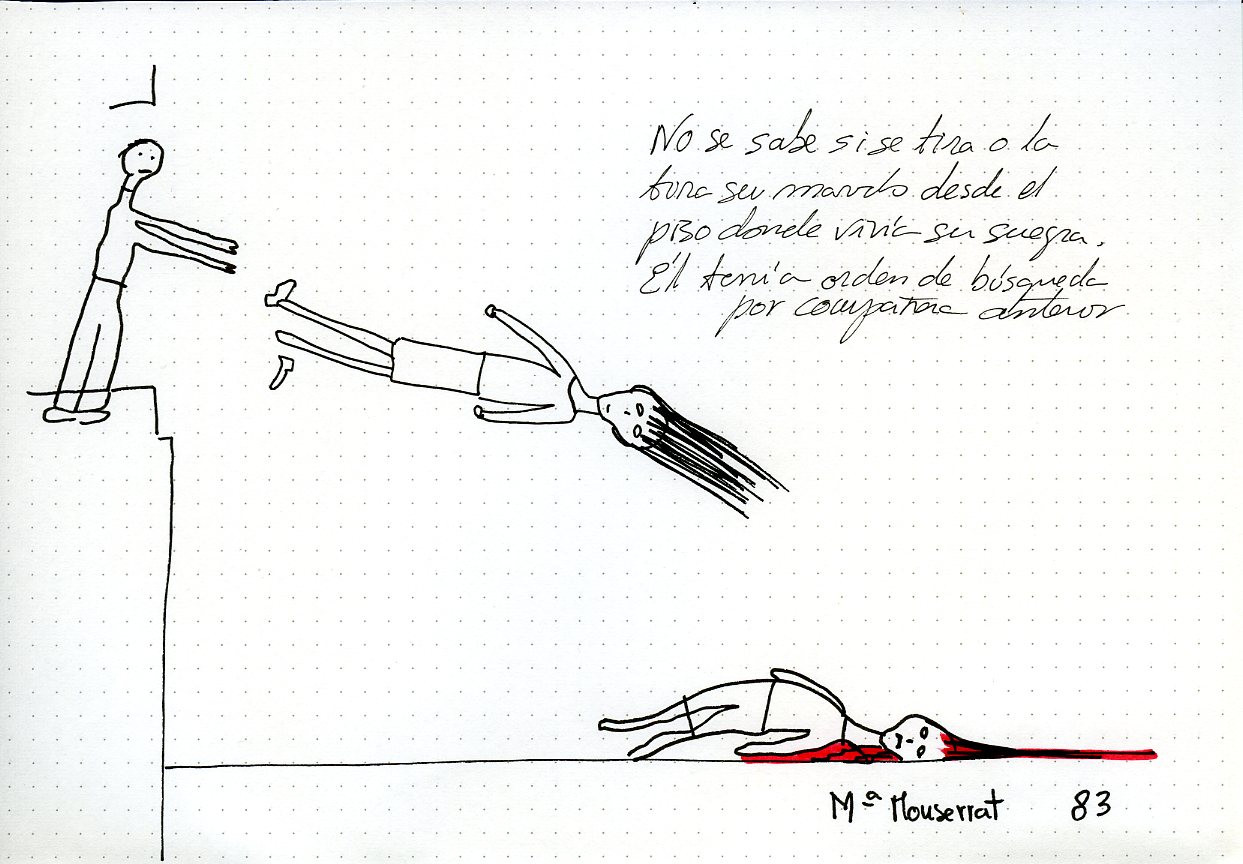 No se sabe si se tira o la
tira su marido desde el
piso donde vivía su suegra.
Él tenía orden de búsqueda
por compañera anterior
Mª Mouserrat 83